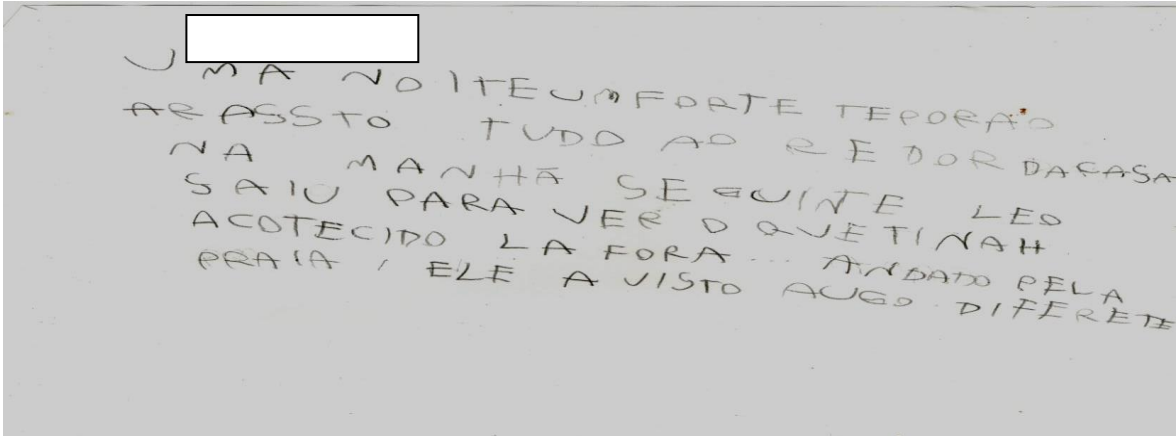 UMA NOITEUMFORTE TEPORAO
ARASSTO TUDO AO REDOR DACASA
NA MANHÃ SEGUINTE LEO
SAIU PARA VER O QUETINAH
ACOTECIDO LA FORA... ANDADO PELA
PRAIA, ELE A VISTO AUGO DIFERETE